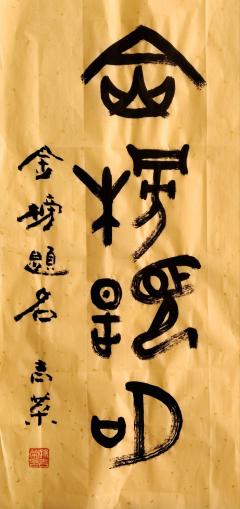 金榜題名
金榜題名
志榮